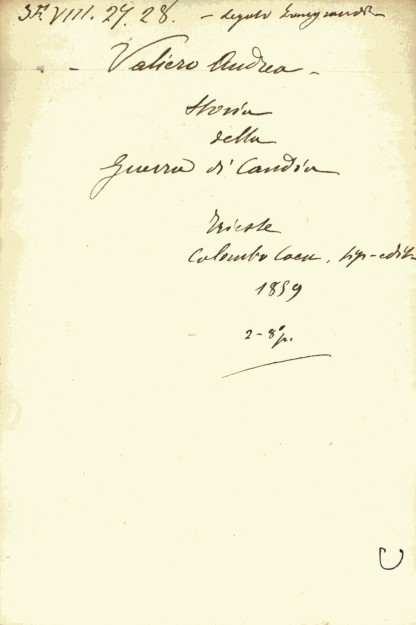 VIII. 27. 28. - Legato
- Valiero Andrea -
Storia
della
Guerra di Candia
Trieste
Colombo Coen, tip-edit
1859
2-8° p.